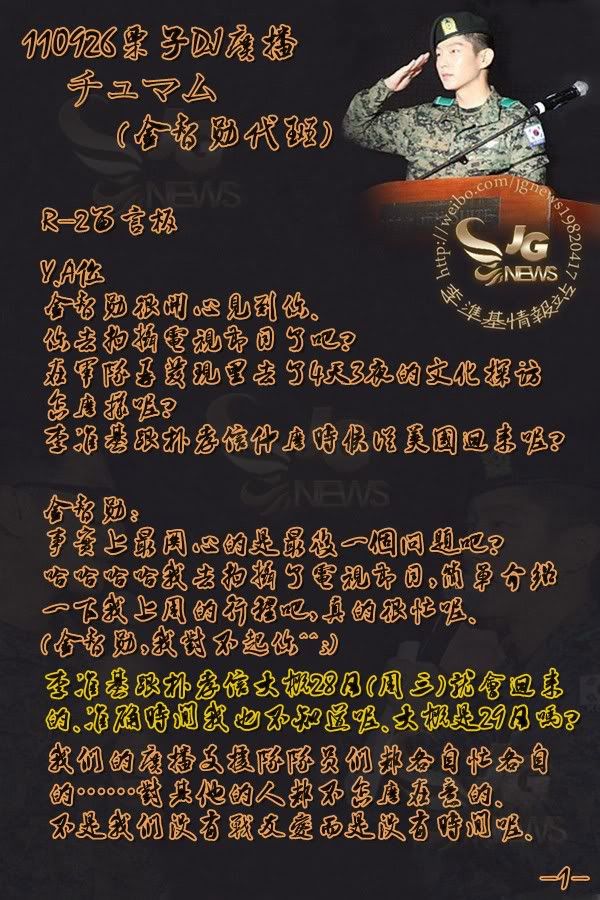 110926栗子DJ廣播
チュマム
(金智勛代班)
http://weibo.com/jgnews19820417
JG
NEWS
李準基情報站
R-2留言板
Y.A位
金智勛很開心見到你、
你去拍攝電視節目了吧?
在軍隊春發現里去了4天3夜的文化探访
怎麼樣呢?
李准基跟朴孝信什麼時候從美國回來呢?
金智勛:
事實上最関心的是最後一個問題吧?
哈哈哈哈我去拍攝了電視節目,簡單介绍
一下我上周的行程吧,真的很忙呢、
(金智勛,我對不起你^^;)
李准基跟朴孝信大概28日(周三)就會回来
的、准确時間我也不知道呢、大概是29日嗎?
我们的廣播支援隊隊员们都各自忙各自
的……對其他的人都不怎麼在意的、
不是我们没有戰友愛而是没有時間呢、
-1-